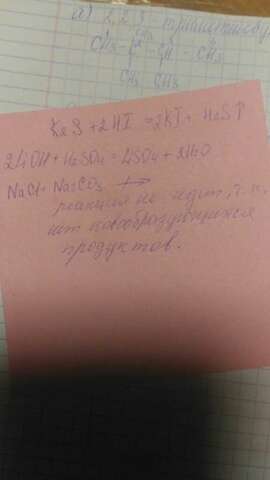 а) 2,2,3 - триметилбу
CH₃
CH₃ - C - CH - CH₃
CH₃ CH₃
K₂S + 2HI = 2KI + H₂S↑
2LiOH + H₂SO₄ = Li₂SO₄ + 2H₂O
NaCl + Na₂CO₃ ↛
реакция не идет, т.к.
нет новообразующихся
продуктов.